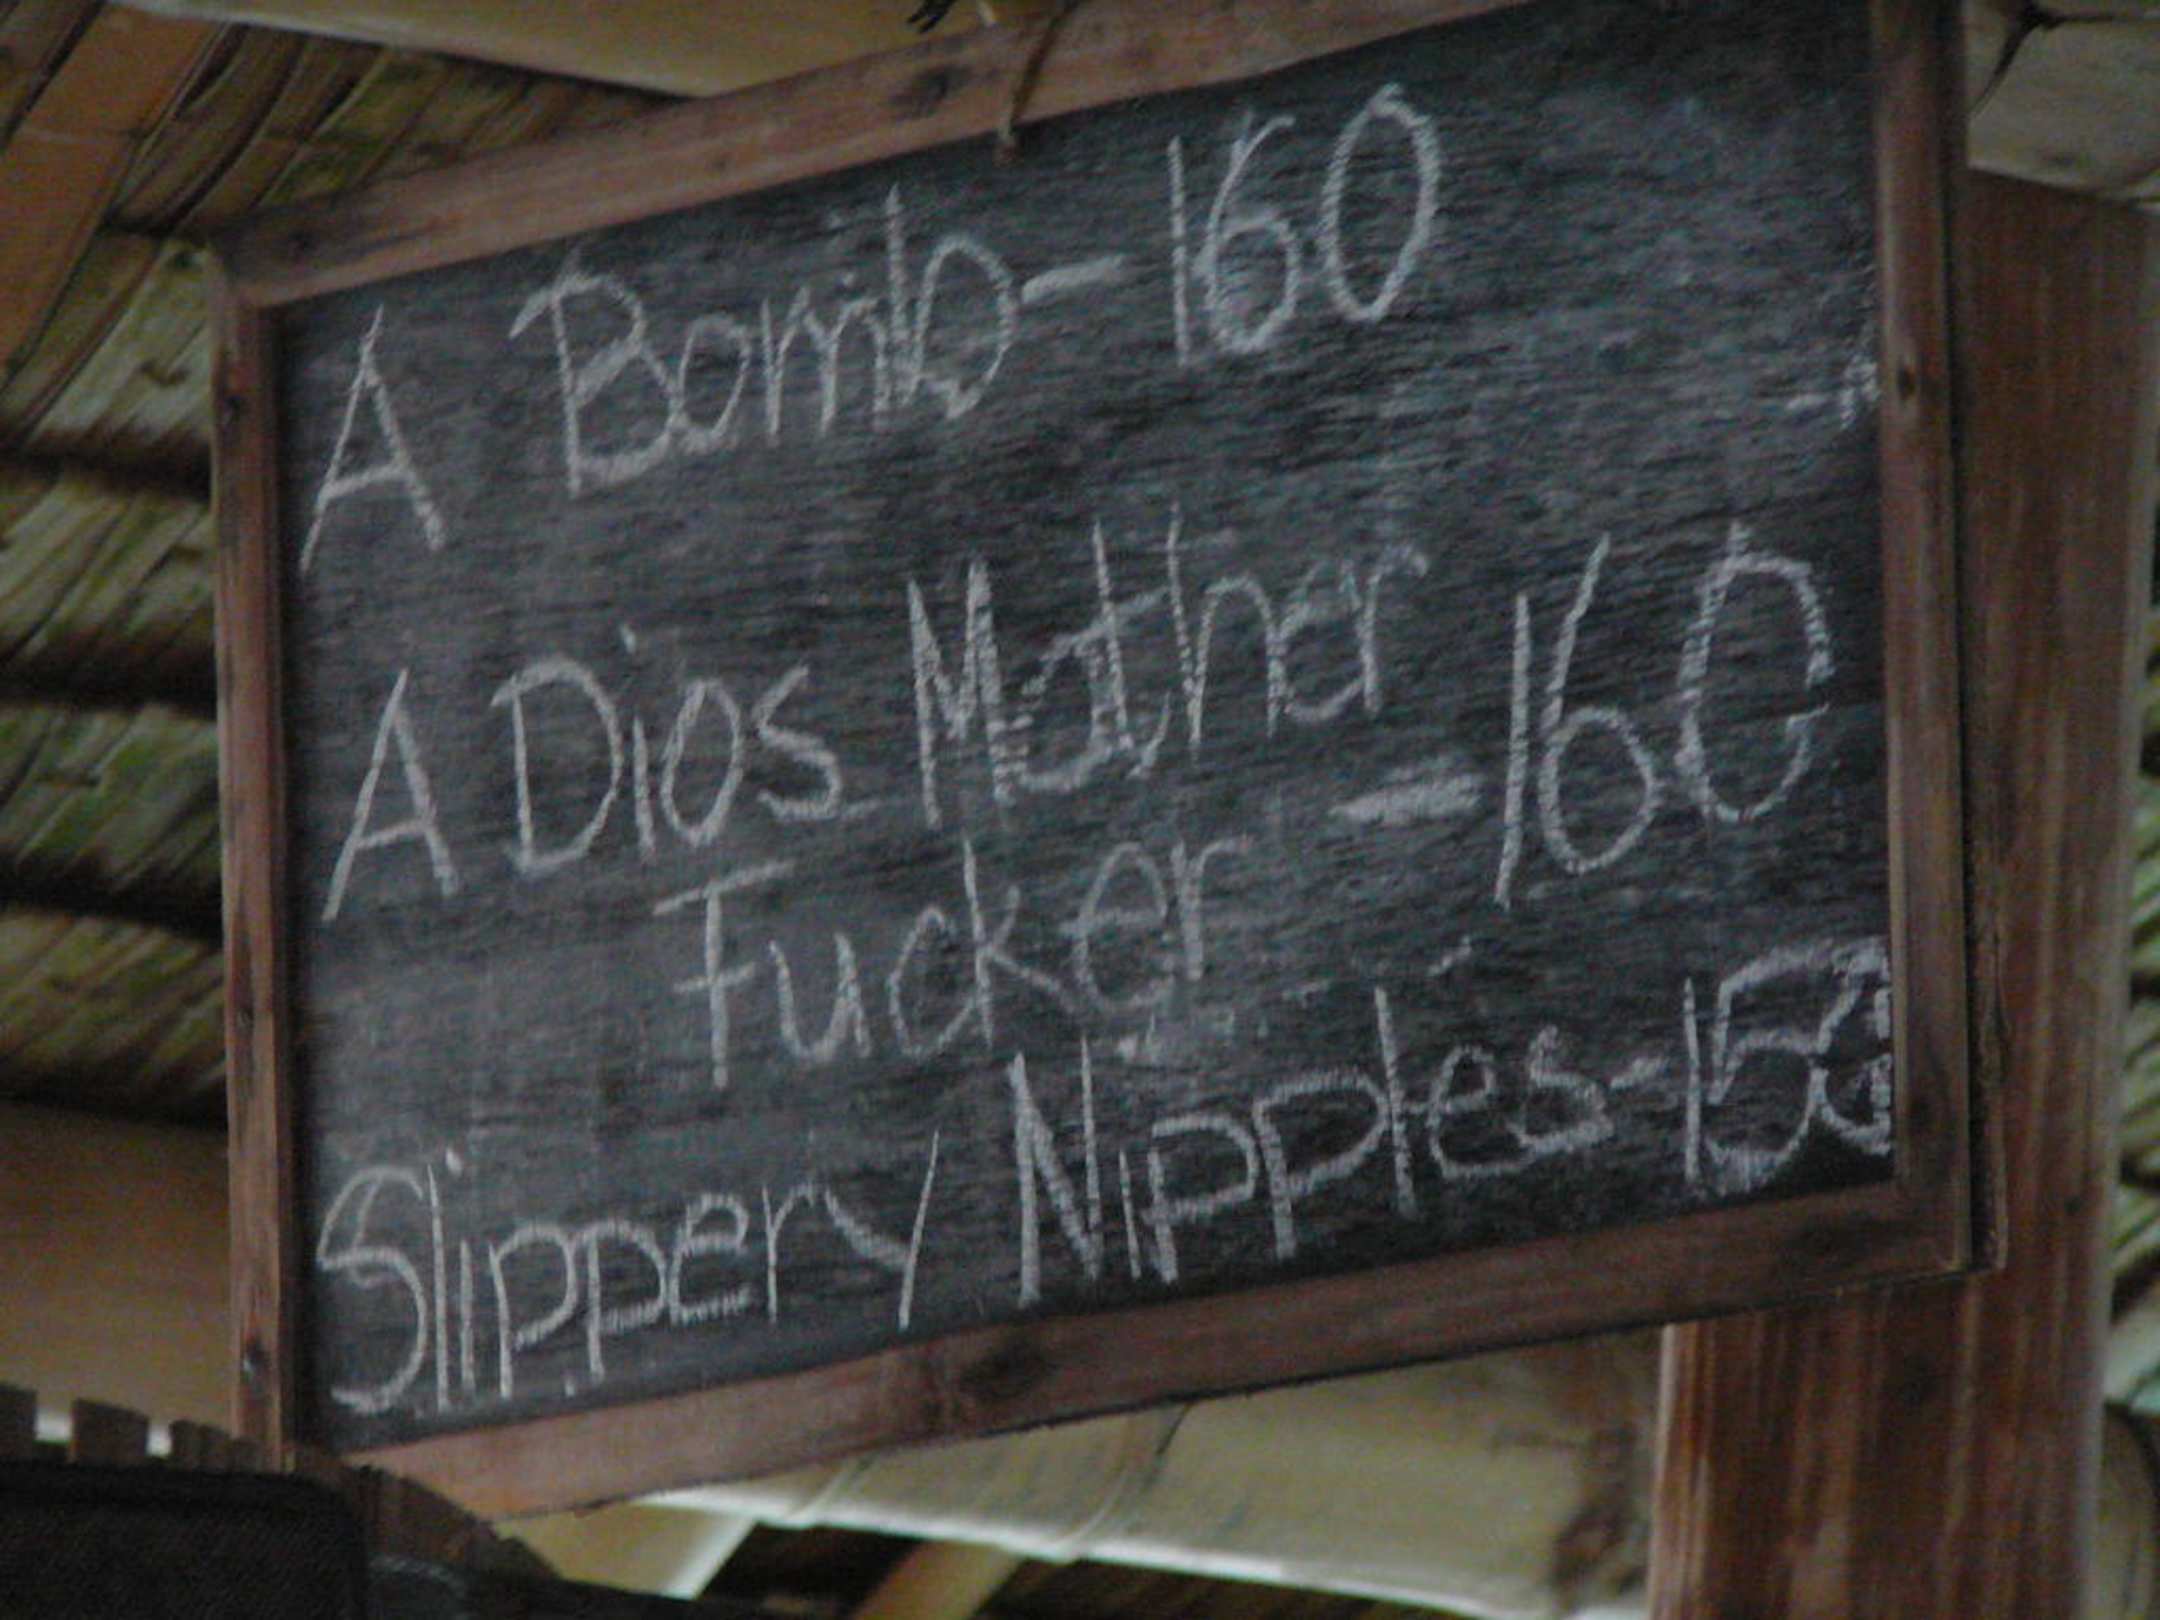 A Bomb - 160
A Dios Mother
Fucker - 160
Slippery Nipples - 150